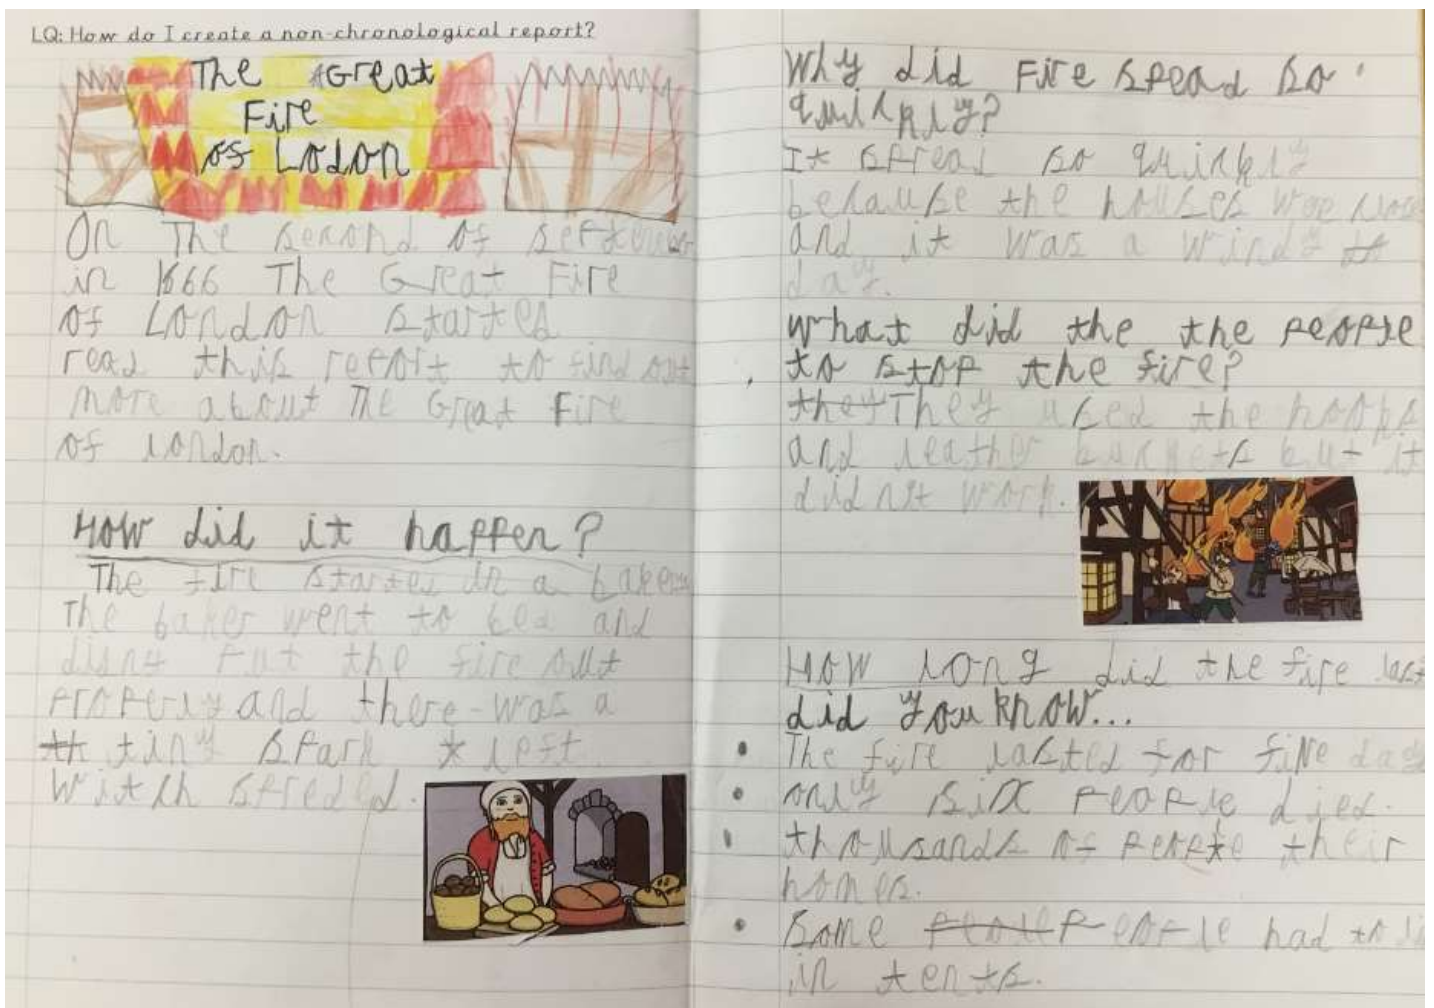 LQ: How do I create a non-chronological report?
The Great
Fire
of Lodon
On The second of september
in 1666 The Great Fire
of London started
read this report to find out
more about The Great Fire
of london.
How did it happen?
The fire started in a bakery
The baker went to bed and
didn't put the fire out
properly and there was a
tiny spark left
witch spreded.
Why did Fire spead so
quickly?
It spread so quickly
because the houses wer close
and it was a windy
day.
What did the the people
to stop the fire?
they They used the hooks
and leather buckets but it
didn't work.
How long did the fire last
did you know...
• The fire lasted for five days
• only six people died.
• thousands of people their
homes.
• Some people had to li
in tents.